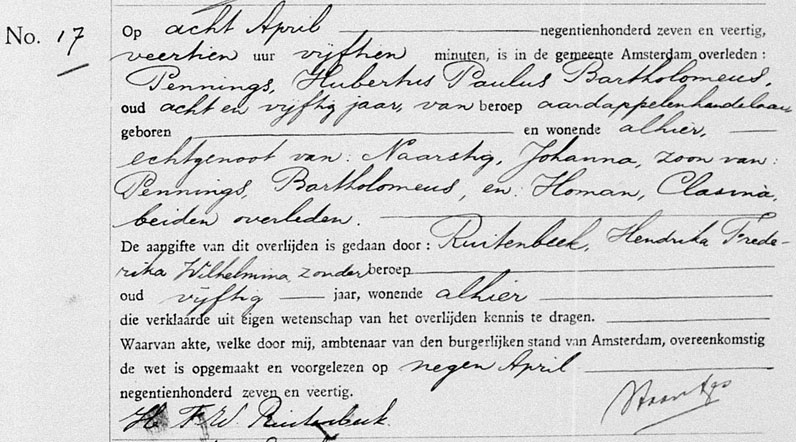 No. 17
Op acht April negentienhonderd zeven en veertig,
veertien uur vijftien minuten, is in de gemeente Amsterdam overleden :
Pennings, Hubertus Paulus Bartholomeus,
oud acht en vijftig jaar, van beroep aardappelenhandelaar
geboren en wonende alhier,
echtgenoot van: Naarstig, Johanna, zoon van:
Pennings, Bartholomeus, en: Homan, Clasina,
beiden overleden.
De aangifte van dit overlijden is gedaan door : Ruitenbeek, Hendrika Frede-
rika Wilhelmina, zonder beroep
oud vijftig jaar, wonende alhier
die verklaarde uit eigen wetenschap van het overlijden kennis te dragen.
Waarvan akte, welke door mij, ambtenaar van den burgerlijken stand van Amsterdam, overeenkomstig
de wet is opgemaakt en voorgelezen op negen April
negentienhonderd zeven en veertig.
H F W Ruitenbeek.